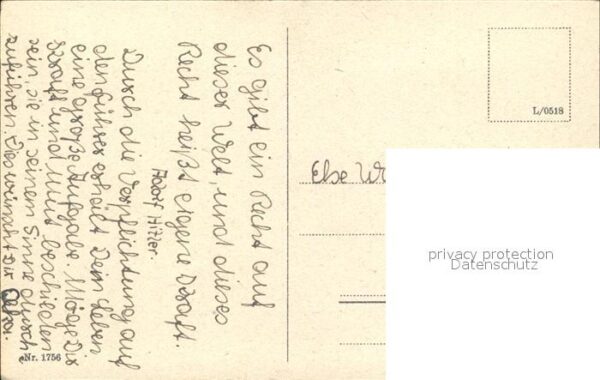 Es gibt ein Recht auf
dieser Welt, und dieses
Recht heißt eigene Kraft.
Adolf Hitler.
Durch die Verpflichtung auf
den Führer erhält Dein Leben
eine große Aufgabe. Möge Dir
Kraft und Mut beschieden
sein, sie in seinem Sinne durch-
zuführen. Dies wünscht Dir
Nr. 1756
L/0518
Else
privacy protection
Datenschutz